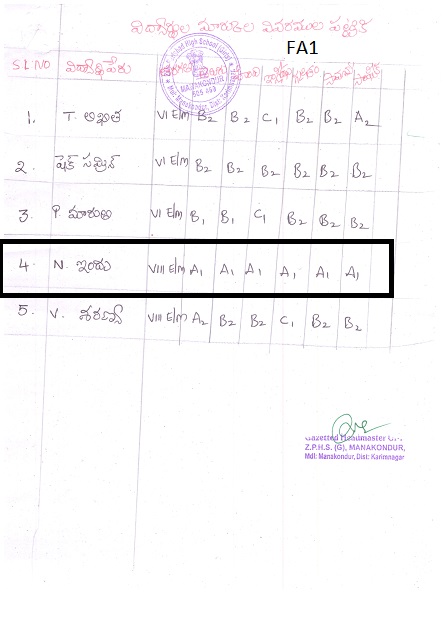 విద్యార్థుల మార్కుల వివరముల పట్టిక
FA1
SL NO విద్యార్థి పేరు
1. T. అఖిత VI E/m B2 B2 C1 B2 B2 A2
2. షేక్ సమ్రీన్ VI E/m B2 B2 B2 B2 B2 B2
3. P. మారుతి VI E/m B1 B1 C1 B2 B2 B2
4. N. ఇందు VIII E/m A1 A1 A1 A1 A1 A1
5. V. శరణ్య VIII E/m A2 B2 B2 C1 B2 B2
Gazetted Headmaster
Z.P.H.S. (G), MANAKONDUR,
Mdl: Manakondur, Dist: Karimnagar